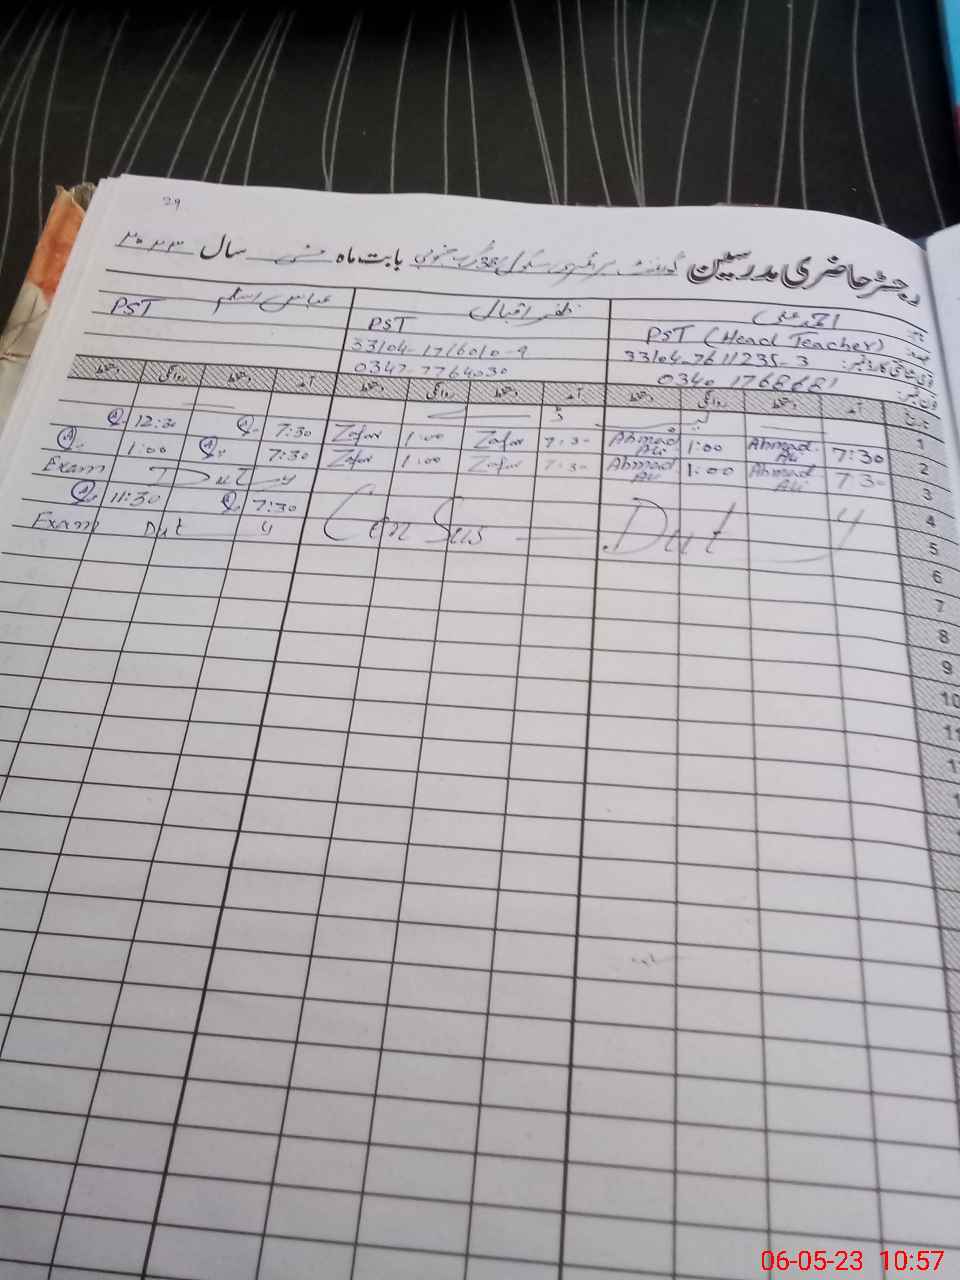 29
رجسٹر حاضری مدرسین گورنمنٹ پرائمری سکول 38 گ ب جنوبی بابت ماہ مئی سال ۲۰۲۳
احمد علی ظفر اقبال عباس اسلم
PST (Head Teacher) PST PST
33104-7611235-3 33104-1716010-9
0340 1768681 0347-7764030
آمد دستخط روانگی دستخط آمد دستخط روانگی دستخط آمد دستخط روانگی دستخط
1
2 7:30 Ahmad Ali 1:00 Ahmad Ali 7:30 Zafar 1:00 Zafar 7:30 12:30
3 7:30 Ahmad Ali 1:00 Ahmad Ali 7:30 Zafar 1:00 Zafar 7:30 1:00
4 Exam Duty
5 Census Duty 7:30 11:30
6 Exam Duty
7
8
9
10
06-05-23 10:57